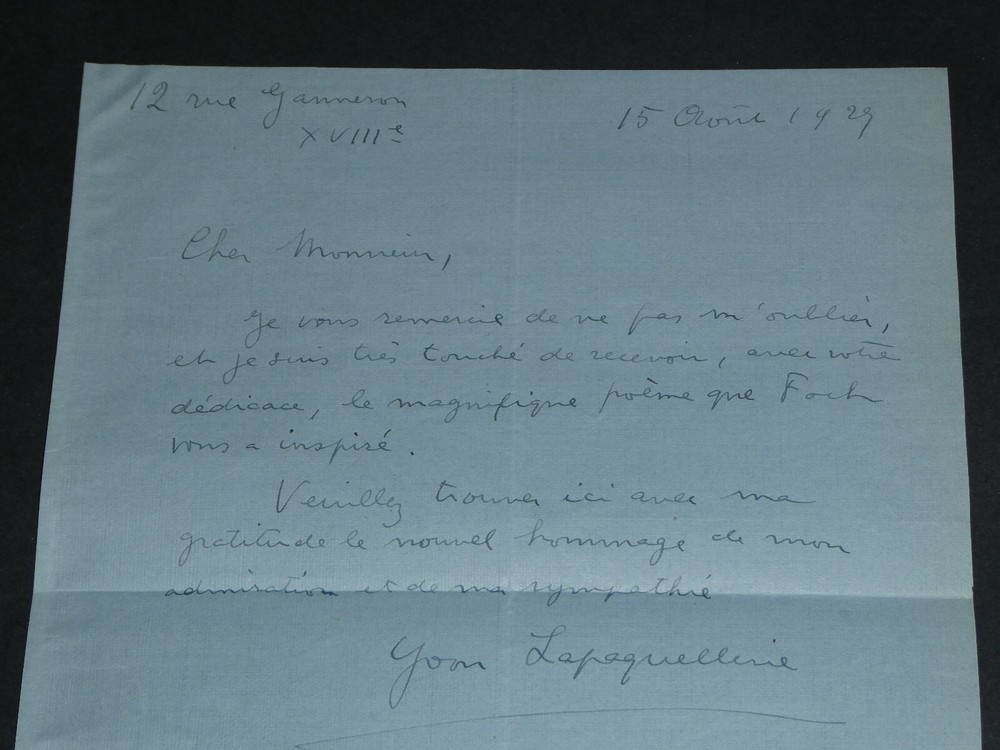 12 rue Ganneron
XVIIIe
15 Août 1929
Cher Monsieur,
Je vous remercie de ne pas m'oublier,
et je suis très touché de recevoir, avec votre
dédicace, le magnifique poème que Foch
vous a inspiré.
Veuillez trouver ici avec ma
gratitude le nouvel hommage de mon
admiration et de ma sympathie
Yvon Lapaquellerie